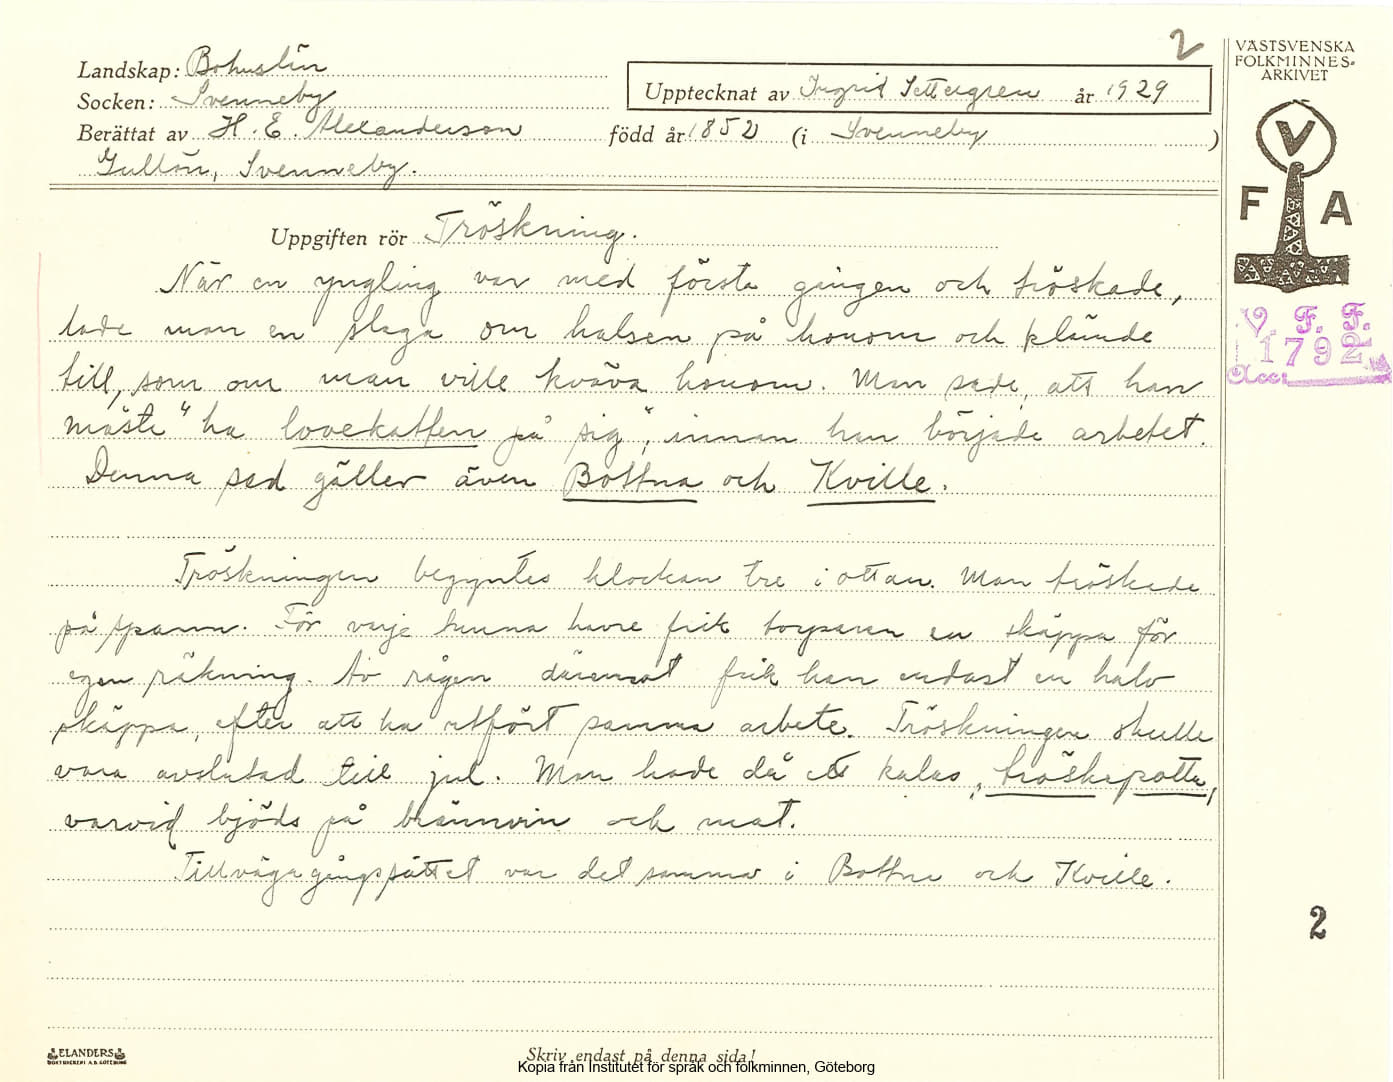 2
Landskap: Bohuslän
Socken: Svenneby
Upptecknat av Ingrid Settergren år 1929
Berättat av H. E. Alexanderson född år 1852 (i Svenneby )
Gullön, Svenneby.
VÄSTSVENSKA
FOLKMINNES-
ARKIVET
V
F A
V. F. F.
1792
Acc:
Uppgiften rör Tröskning.
När en yngling var med första gången och tröskade,
lade man en slaga om halsen på honom och klämde
till, som om man ville kväva honom. Man sade, att han
måste "ha lovekatten på sig", innan han började arbetet.
Denna sed gäller även Bottna och Kville.
Tröskningen begyntes klockan tre i ottan. Man tröskade
på spann. För varje tunna havre fick torparen en skäppa för
egen räkning. Av rågen däremot fick han endast en halv
skäppa, efter att ha utfört samma arbete. Tröskningen skulle
vara avslutad till jul. Man hade då ett kalas, "tröskepotta",
varvid bjöds på brännvin och mat.
Tillvägagångssättet var det samma i Bottna och Kville.
2
ELANDERS
BOKTRYCKERI A.B. GÖTEBORG
Skriv endast på denna sida!
Kopia från Institutet för språk och folkminnen, Göteborg